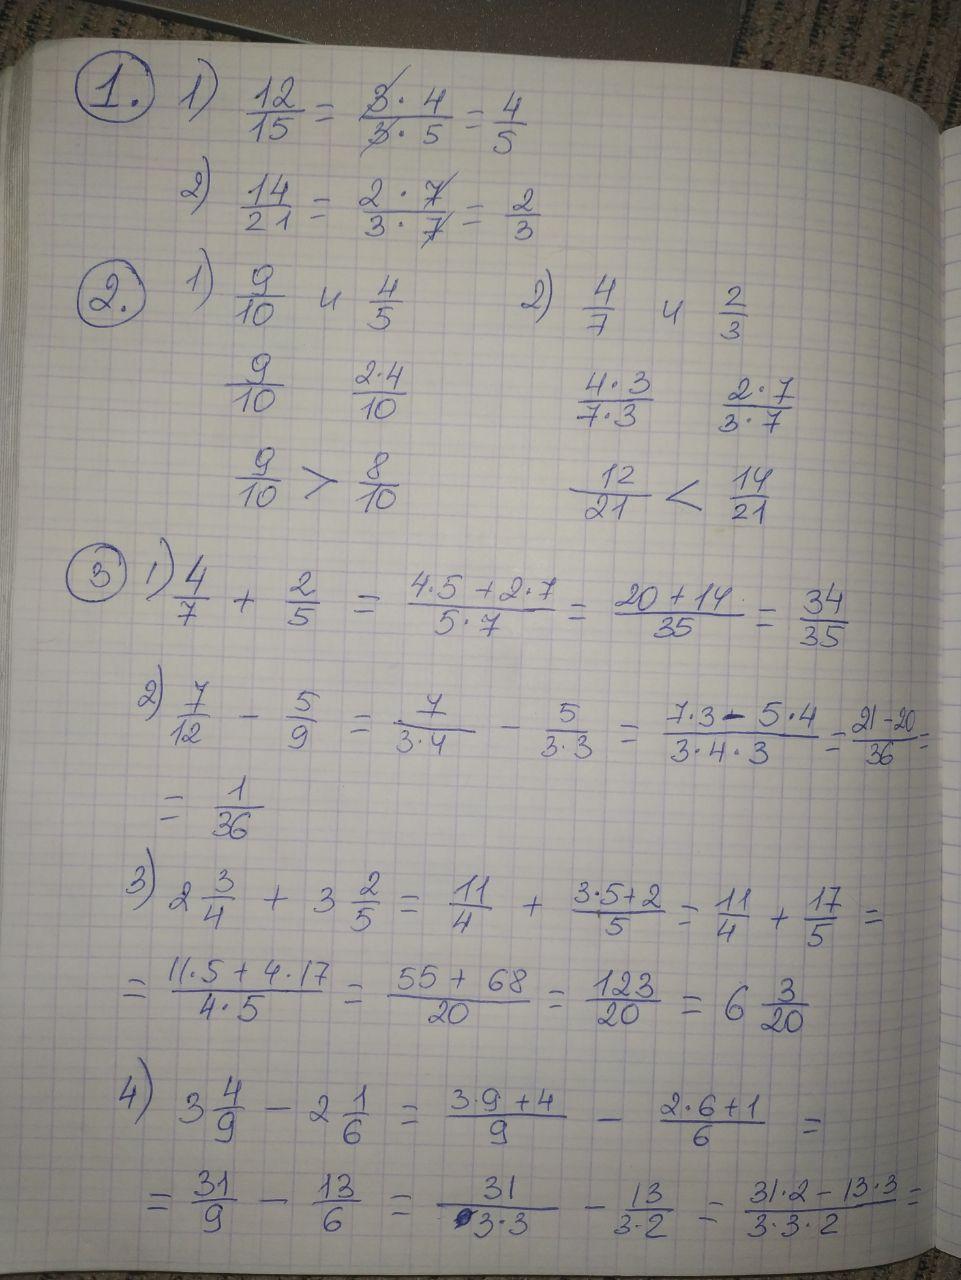 1. 1) 12/15 = 3·4/3·5 = 4/5
2) 14/21 = 2·7/3·7 = 2/3
2. 1) 9/10 и 4/5 2) 4/7 и 2/3
9/10 2·4/10 4·3/7·3 2·7/3·7
9/10 > 8/10 12/21 < 14/21
3 1) 4/7 + 2/5 = 4·5+2·7/5·7 = 20+14/35 = 34/35
2) 7/12 - 5/9 = 7/3·4 - 5/3·3 = 7·3-5·4/3·4·3 = 21-20/36 =
= 1/36
3) 2 3/4 + 3 2/5 = 11/4 + 3·5+2/5 = 11/4 + 17/5 =
= 11·5+4·17/4·5 = 55+68/20 = 123/20 = 6 3/20
4) 3 4/9 - 2 1/6 = 3·9+4/9 - 2·6+1/6 =
= 31/9 - 13/6 = 31/3·3 - 13/3·2 = 31·2-13·3/3·3·2 =